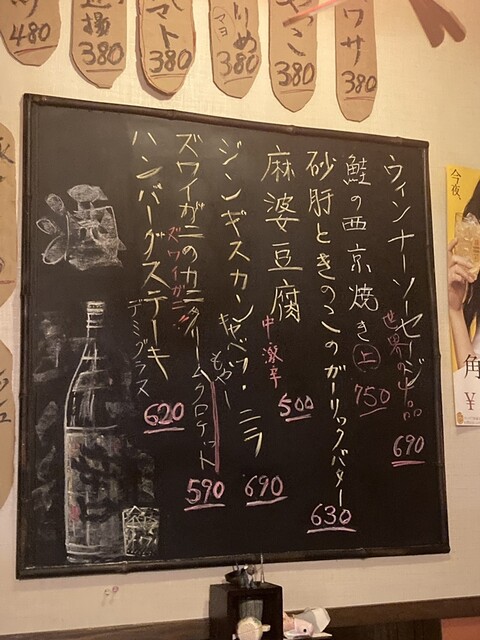 ワサ
380
やっこ
380
りめ
マヨ
380
マト
380
揚
380
480
ウィンナーソーセージ
世界の山品
690
鮭の西京焼き
上
750
砂肝ときのこのガーリックバター
630
麻婆豆腐
中激辛
500
ジンギスカン
キャベツ・ニラ
もやし
690
ズワイガニのカニクリームクロケット
ズワイガニ!!
590
ハンバーグステーキ
デミグラス
620
酒
今夜、
角
¥